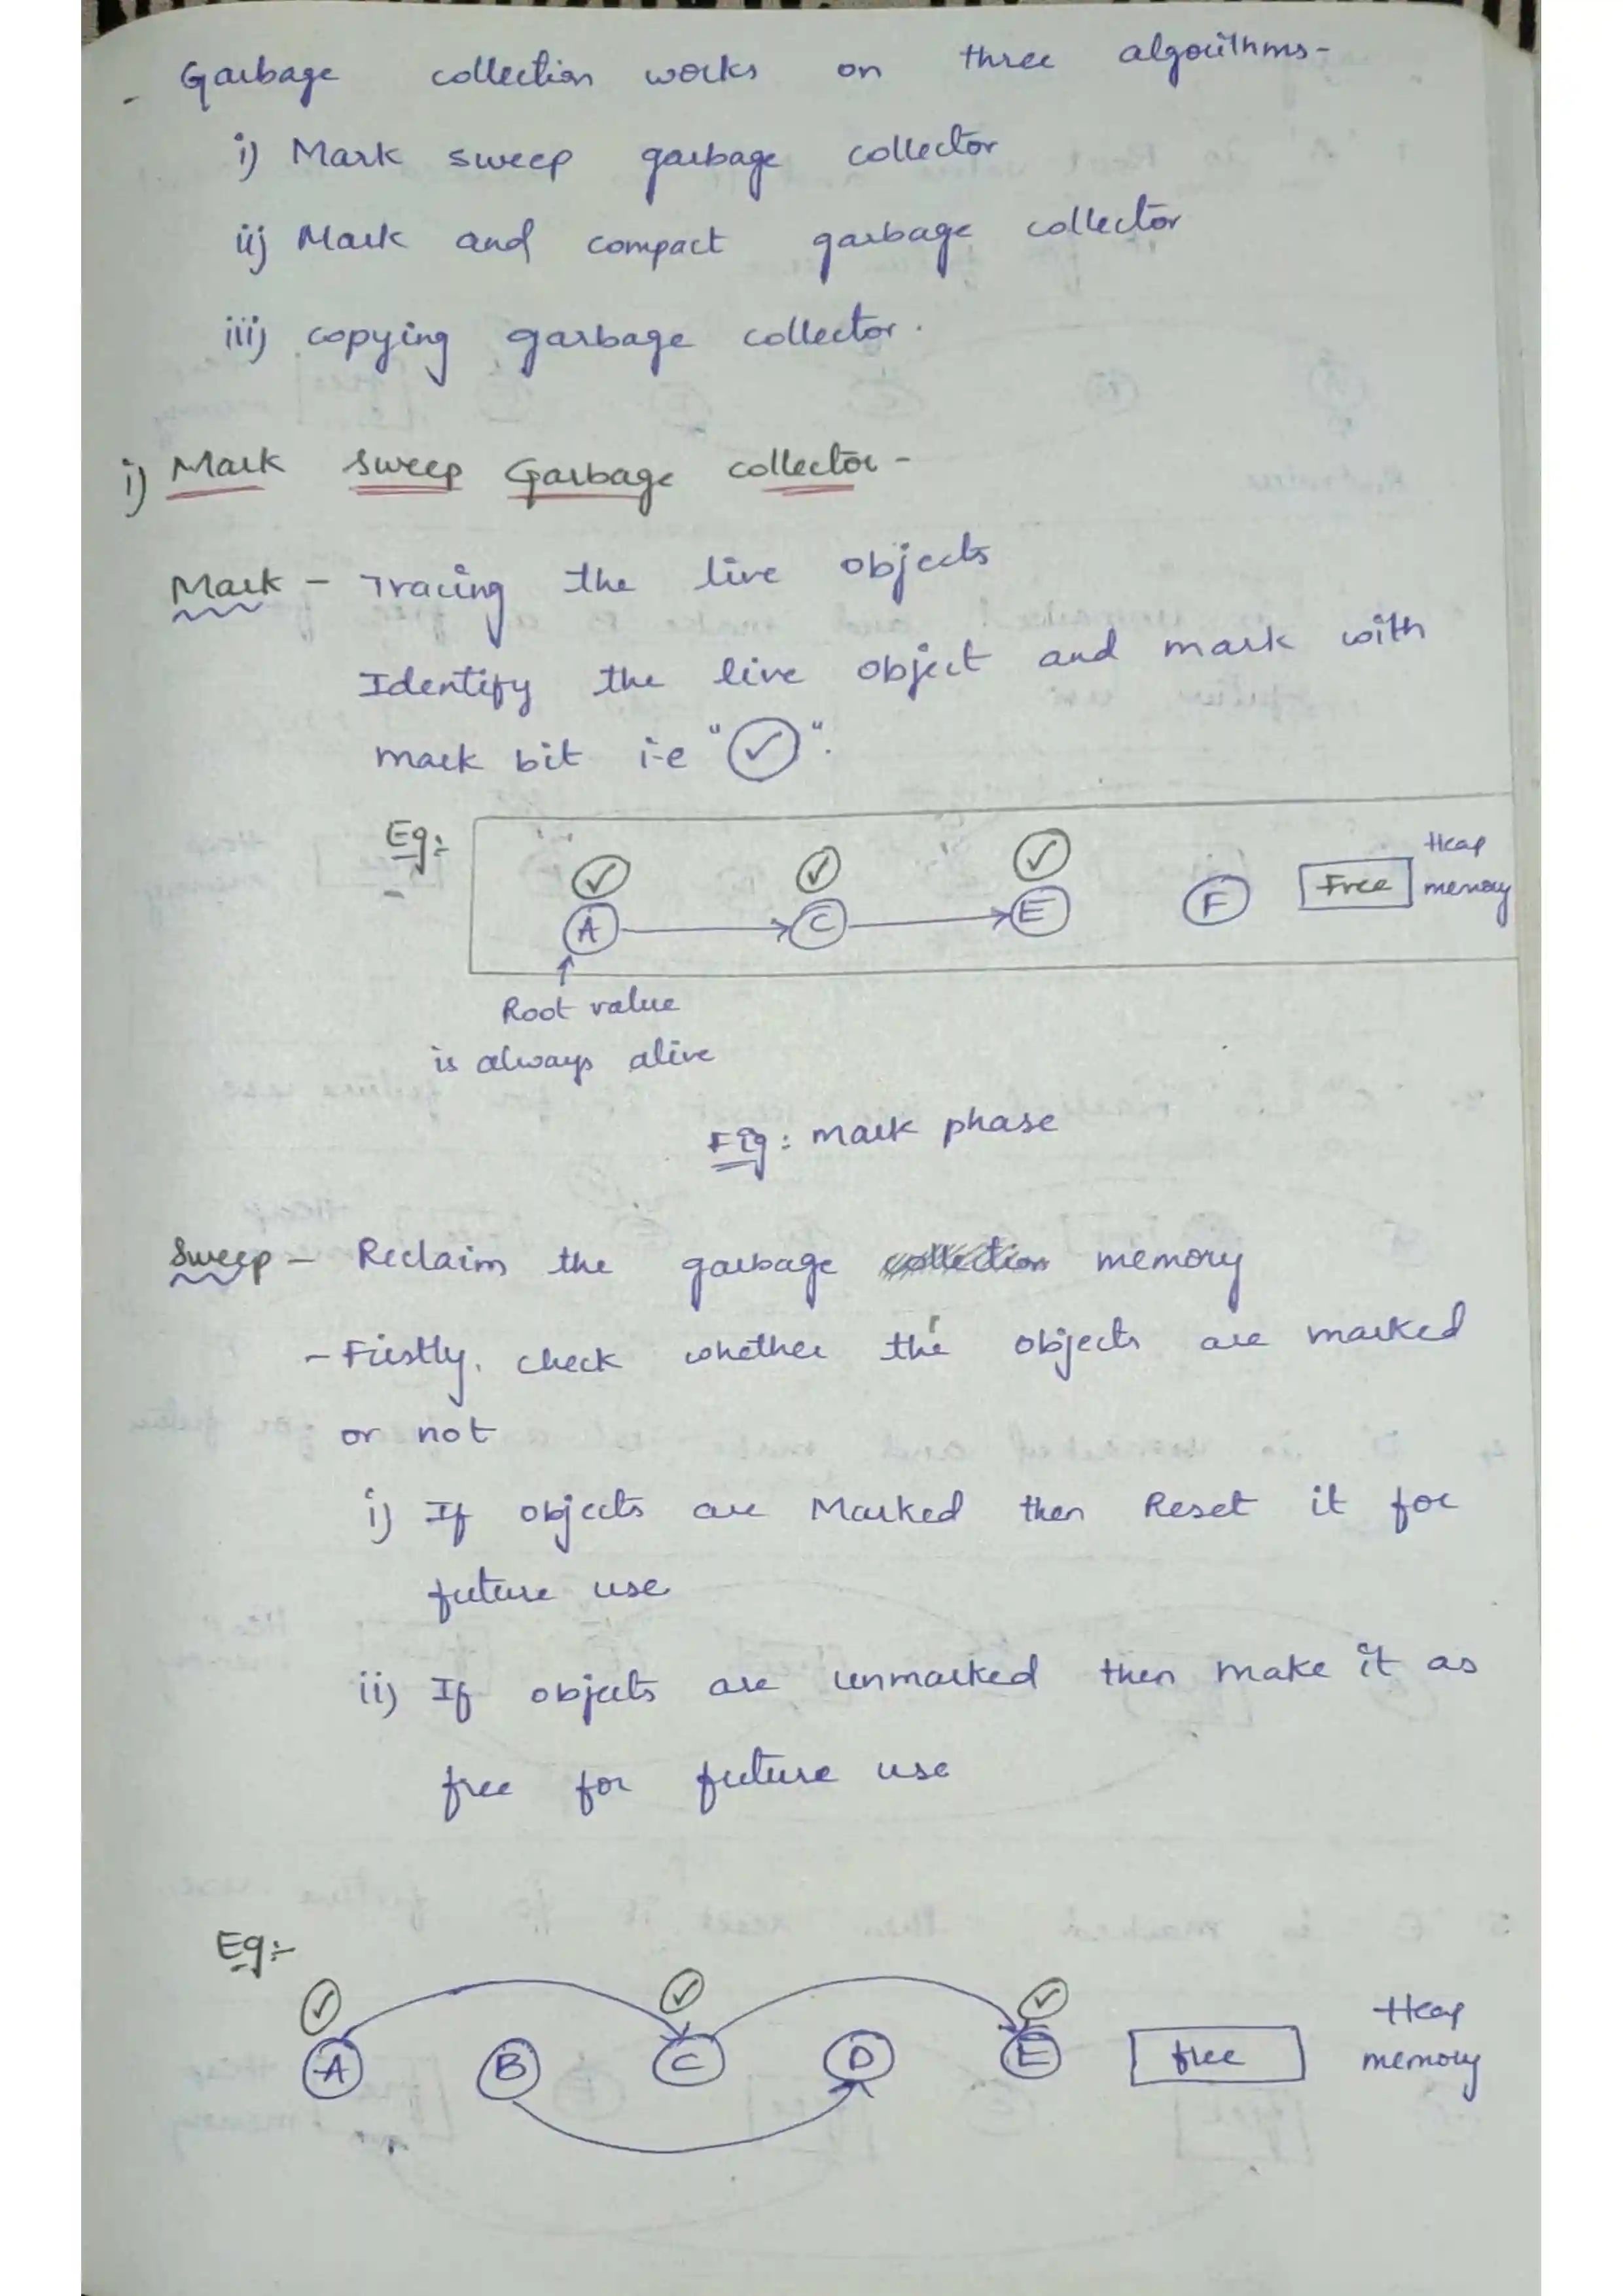 - Garbage collection works on three algorithms-
i) Mark sweep garbage collector
ii) Mark and compact garbage collector
iii) copying garbage collector.
i) Mark sweep Garbage collector -
Mark - Tracing the live objects
Identify the live object and mark with
mark bit i-e "✓".
Eg:-
✓ ✓ ✓
A C E F Free Heap memory
Root value
is always alive
Fig: mark phase
Sweep - Reclaim the garbage collection memory
- Firstly, check whether the objects are marked
or not
i) If objects are Marked then Reset it for
future use
ii) If objects are unmarked then make it as
free for future use
Eg:-
✓ ✓ ✓
A B C D E free Heap memory